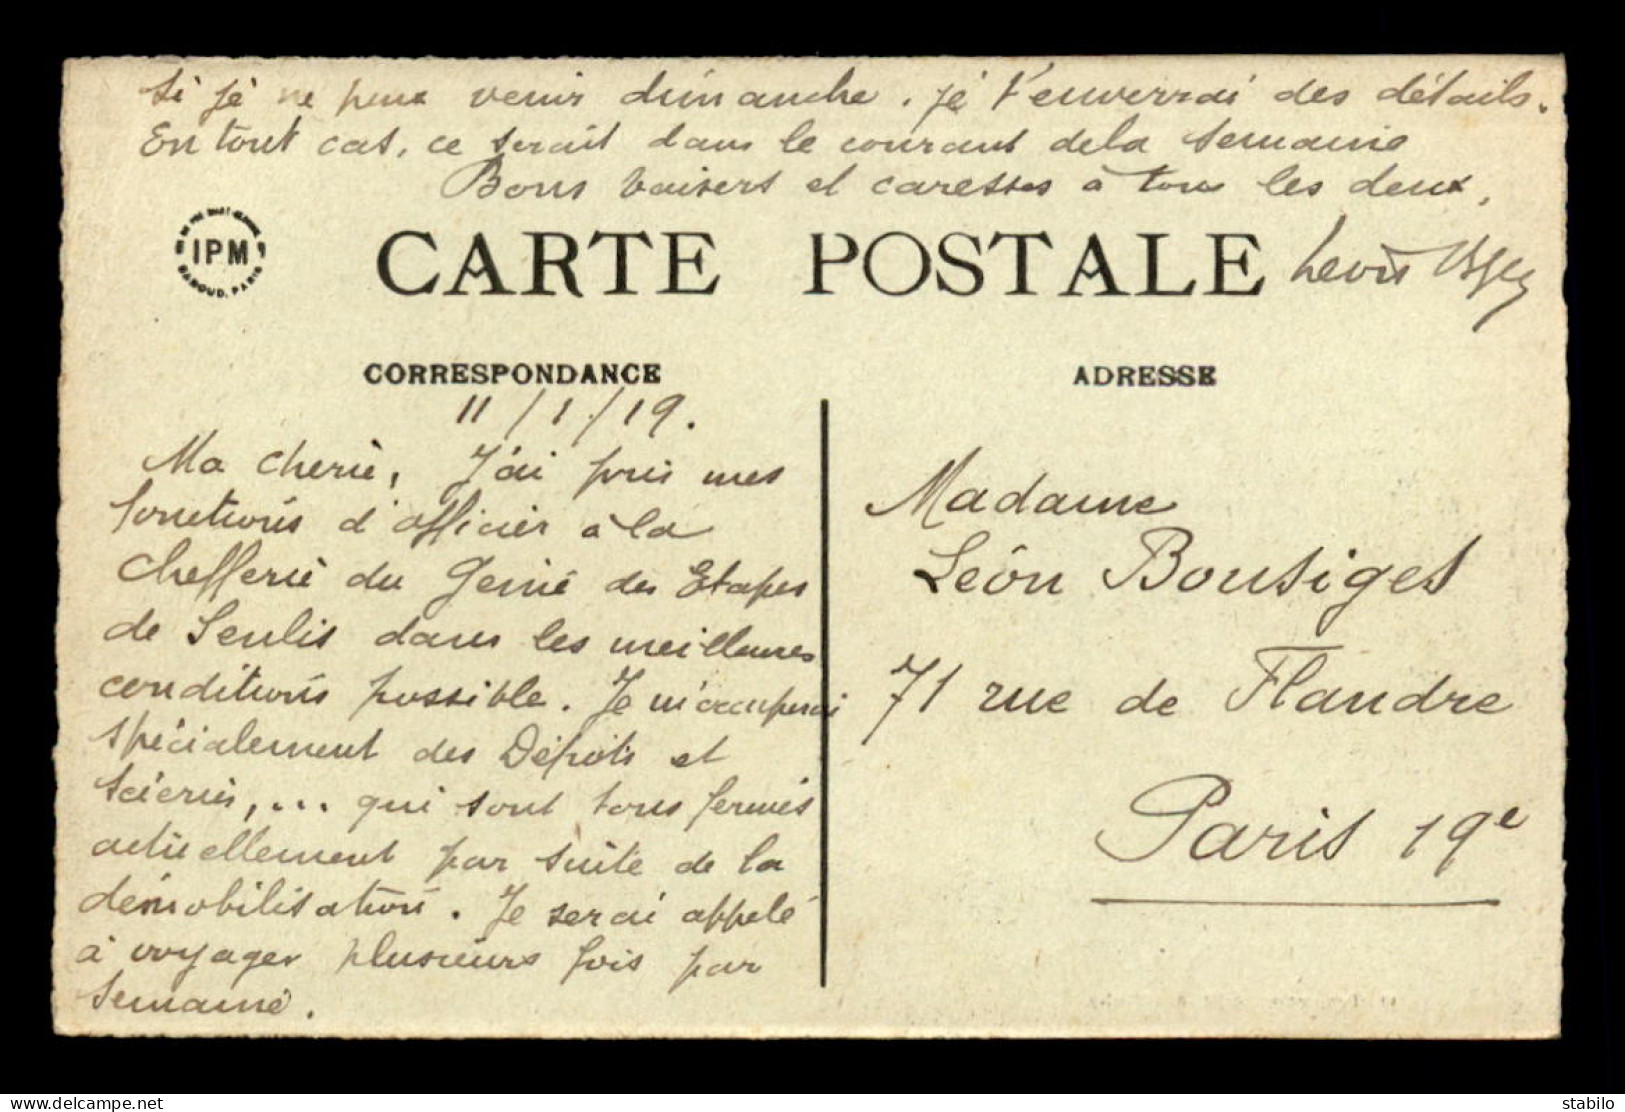 Si je ne peux venir dimanche. je t'enverrai des détails.
En tout cas, ce serait dans le courant de la semaine
Bons baisers et caresses à tous les deux,
IPM
CARTE POSTALE
CORRESPONDANCE
ADRESSE
11/1/19.
Ma cherie, J'ai pris mes
fonctions d'officier à la
Chefferie du Génie des Etapes
de Senlis dans les meilleures
conditions possible. Je m'occuperai
spécialement des Dépôts et
Scieries, ... qui sont tous fermés
actuellement par suite de la
démobilisation. Je serai appelé
à voyager plusieurs fois par
semaine.
Madame
Léon Bousiges
71 rue de Flandre
Paris 19e
delcampe.net
stabilo